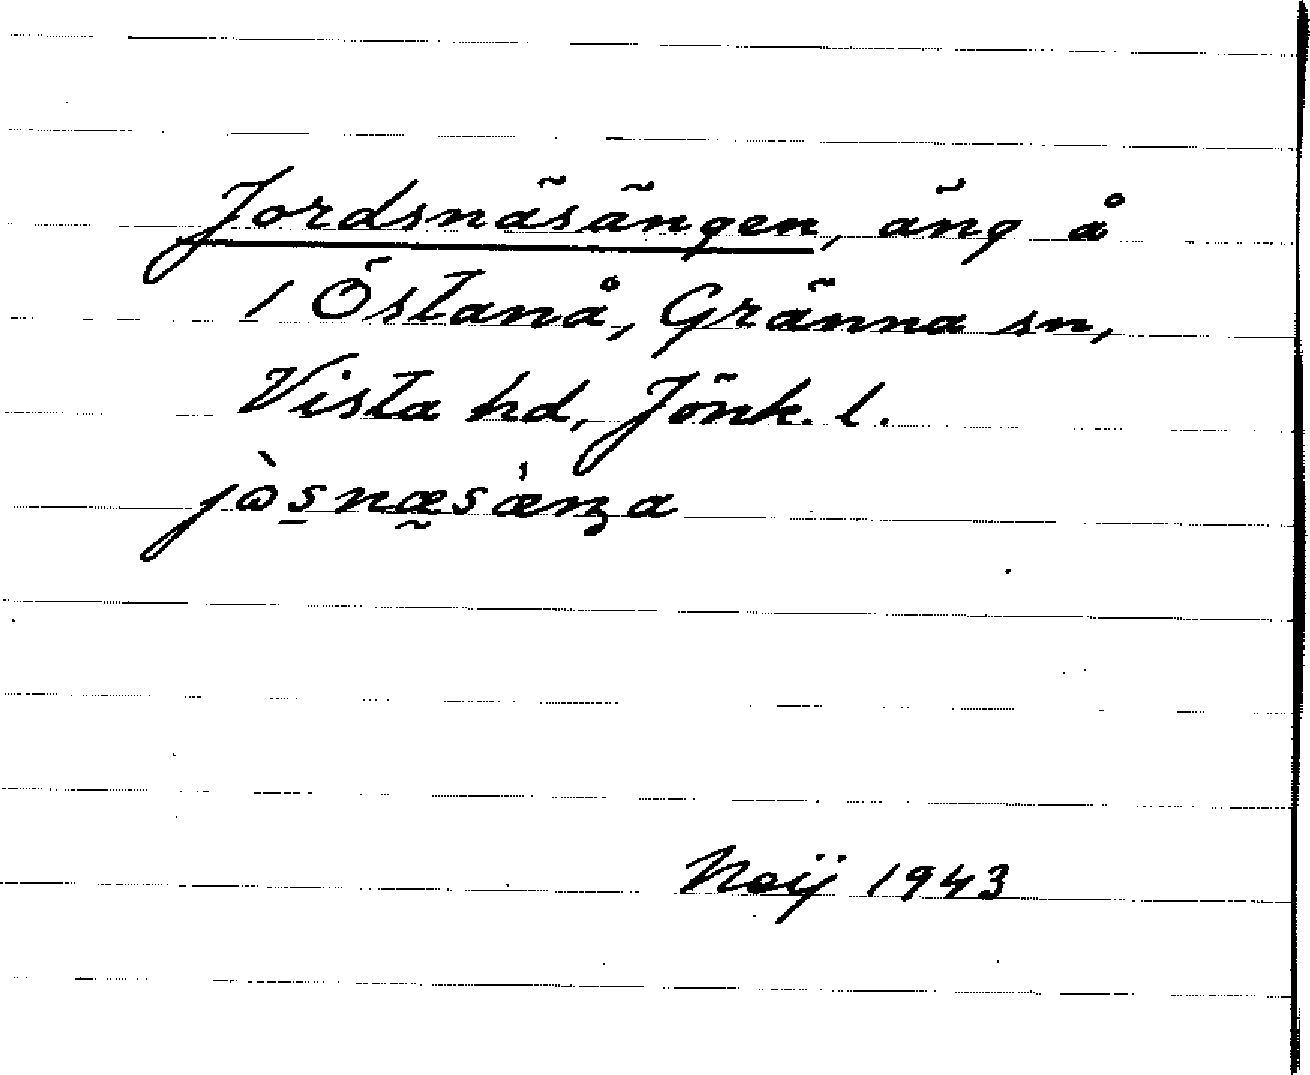 Jordsnäsängen, äng å
1 Östanå, Gränna sn,
Vista hd, Jönk. l.
jòs̲næ̰sæ̀nʒa
Noij 1943